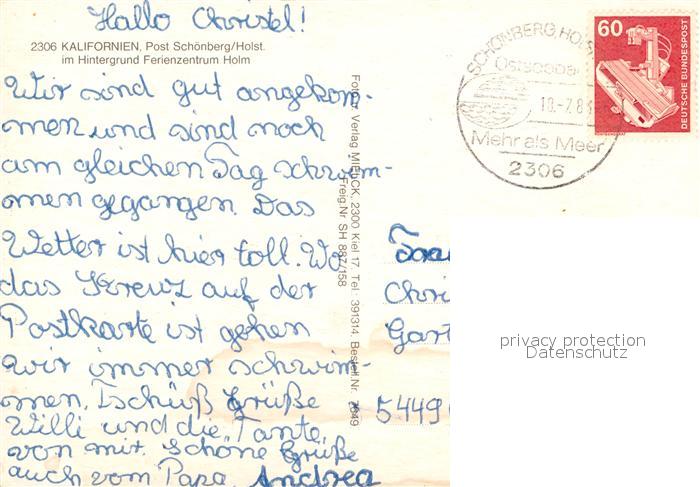 Hallo Christel!
2306 KALIFORNIEN, Post Schönberg/Holst.
im Hintergrund Ferienzentrum Holm
Wir sind gut angekom-
men und sind noch
am gleichen Tag schwim-
men gegangen. Das
Wetter ist hier toll. Wo
das Kreuz auf der
Postkarte ist gehen
wir immer schwim-
men. Tschüß Grüße
Willi und die Tante
von mir. Schöne Grüße
auch vom Papa. Andrea
Foto u. Verlag MIELCK, 2300 Kiel 17, Tel. 391314, Bestell.Nr. 7649
Freig.Nr SH 887/158
SCHÖNBERG, HOLST
Ostseebad
10.-7.8
Mehr als Meer
2306
60
DEUTSCHE BUNDESPOST
Frau
Chri
Gart
5449
privacy protection
Datenschutz